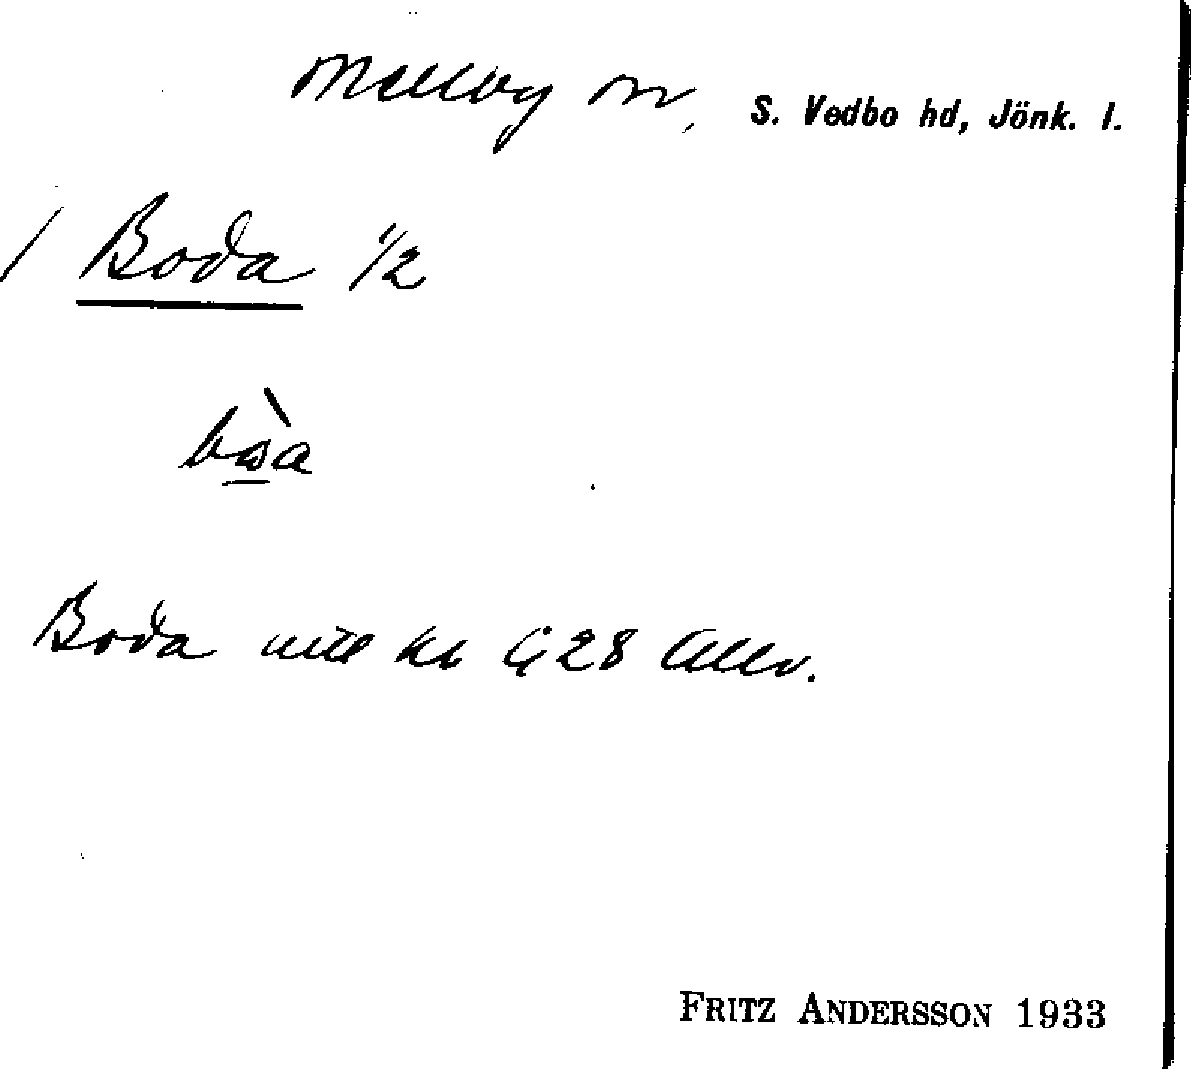 Mellby sn, S. Vedbo hd, Jönk. l.
/ Boda 1/2
bωa
Boda mtl kr Ç 28 Allv.
FRITZ ANDERSSON 1933